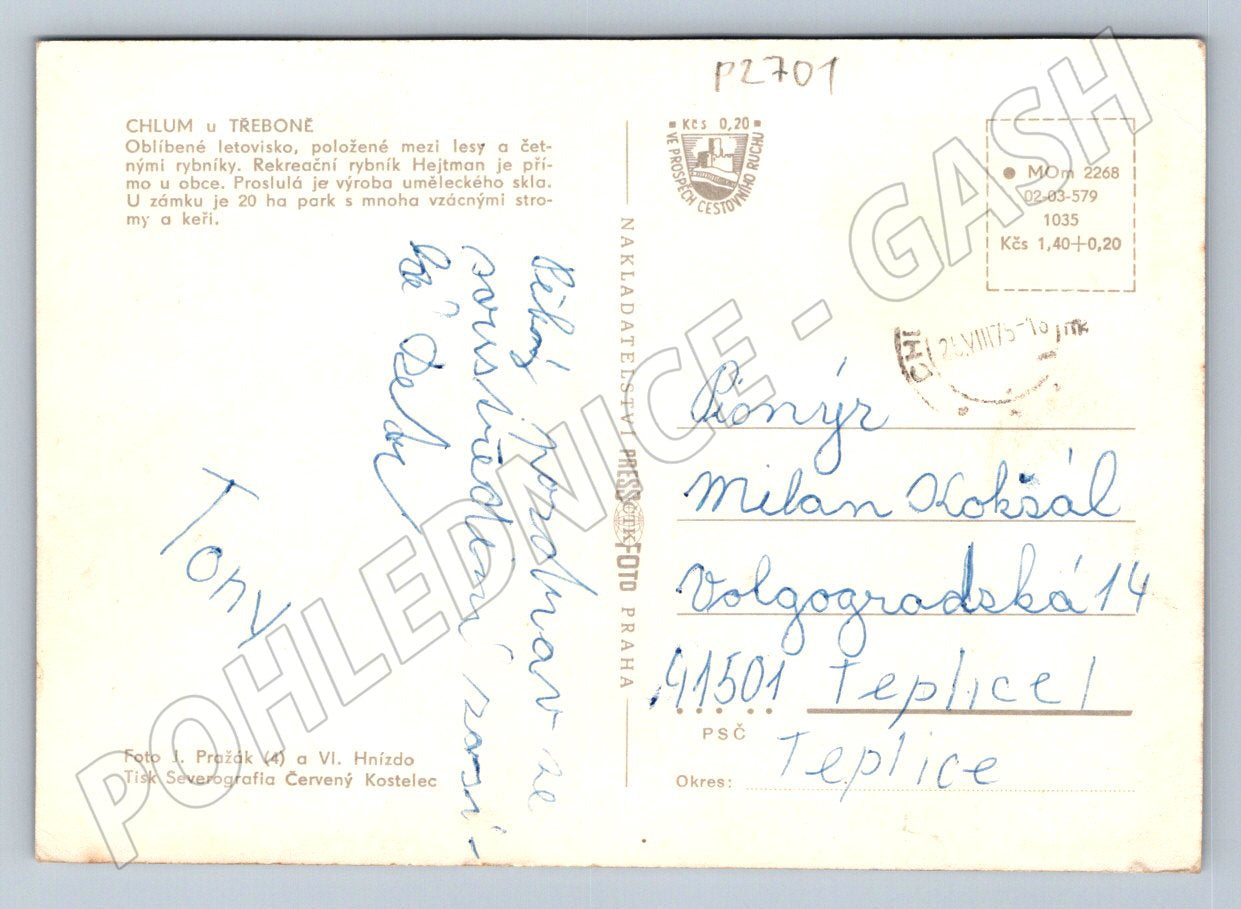 P2701
CHLUM u TŘEBONĚ
Oblíbené letovisko, položené mezi lesy a čet-
nými rybníky. Rekreační rybník Hejtman je pří-
mo u obce. Proslulá je výroba uměleckého skla.
U zámku je 20 ha park s mnoha vzácnými stro-
my a keři.
Pěkný pozdrav ze
soustředění zasí-
lá
Tony
Foto J. Pražák (4) a Vl. Hnízdo
Tisk Severografia Červený Kostelec
NAKLADATELSTVÍ PRESSFOTO PRAHA
ČTK
Kčs 0,20
VE PROSPĚCH CESTOVNÍHO RUCHU
MOm 2268
02-03-579
1035
Kčs 1,40+0,20
Pionýr
Milan Kokšál
Volgogradská 14
41501 Teplice 1
PSČ
Okres: Teplice
POHLEDNICE - GASH